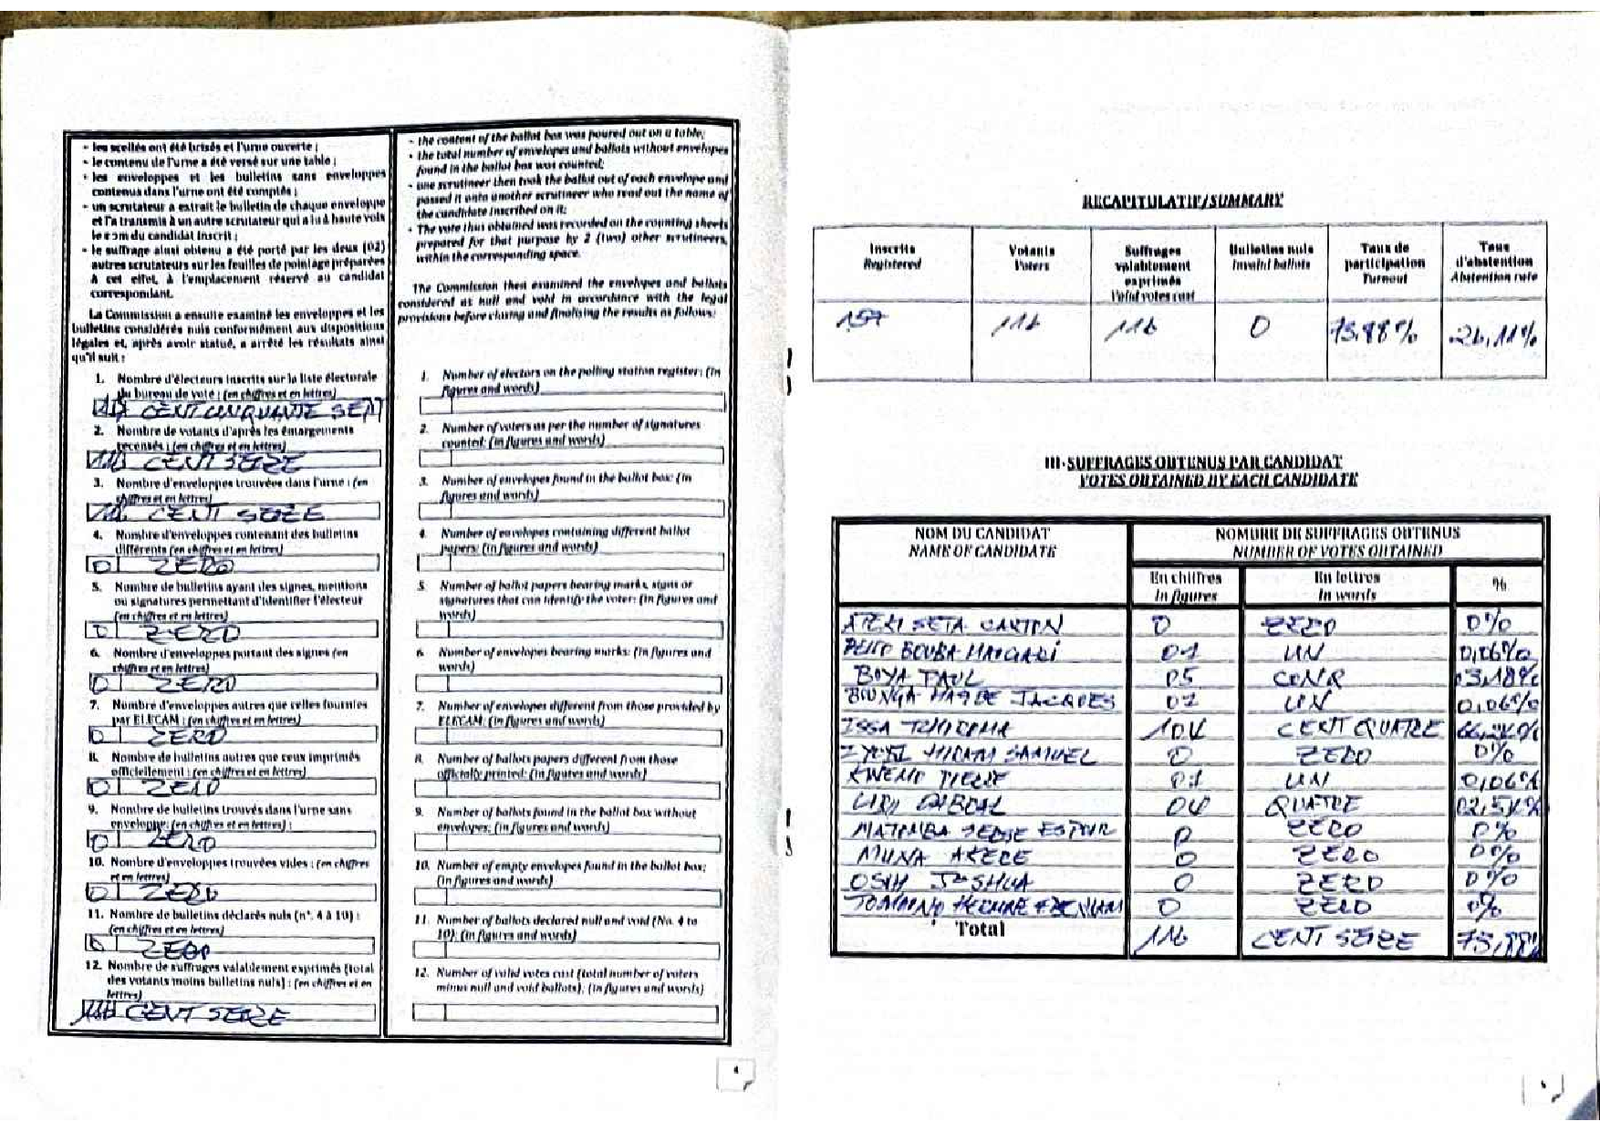 - les scellés ont été brisés et l'urne ouverte ;
- le contenu de l'urne a été versé sur une table ;
- les enveloppes et les bulletins sans enveloppes
contenus dans l'urne ont été comptés ;
- un scrutateur a extrait le bulletin de chaque enveloppe
et l'a transmis à un autre scrutateur qui a lu à haute voix
le nom du candidat inscrit ;
- le suffrage ainsi obtenu a été porté par les deux (02)
autres scrutateurs sur les feuilles de pointage préparées
à cet effet, à l'emplacement réservé au candidat
correspondant.
La Commission a ensuite examiné les enveloppes et les
bulletins considérés nuls conformément aux dispositions
légales et, après avoir statué, a arrêté les résultats ainsi
qu'il suit :
1. Nombre d'électeurs inscrits sur la liste électorale
du bureau de vote : (en chiffres et en lettres)
CENT CINQUANTE SEPT
2. Nombre de votants d'après les émargements
recensés : (en chiffres et en lettres)
116 CENT SEIZE
3. Nombre d'enveloppes trouvées dans l'urne : (en
chiffres et en lettres)
116 CENT SEIZE
4. Nombre d'enveloppes contenant des bulletins
différents (en chiffres et en lettres)
0 ZERO
5. Nombre de bulletins ayant des signes, mentions
ou signatures permettant d'identifier l'électeur
(en chiffres et en lettres)
0 ZERO
6. Nombre d'enveloppes portant des signes (en
chiffres et en lettres)
0 ZERO
7. Nombre d'enveloppes autres que celles fournies
par ELECAM : (en chiffres et en lettres)
0 ZERO
8. Nombre de bulletins autres que ceux imprimés
officiellement : (en chiffres et en lettres)
0 ZERO
9. Nombre de bulletins trouvés dans l'urne sans
enveloppe: (en chiffres et en lettres) :
0 ZERO
10. Nombre d'enveloppes trouvées vides : (en chiffres
et en lettres)
0 ZERO
11. Nombre de bulletins déclarés nuls (n°. 4 à 10) :
(en chiffres et en lettres)
0 ZERO
12. Nombre de suffrages valablement exprimés (total
des votants moins bulletins nuls) : (en chiffres et en
lettres)
116 CENT SEIZE
- the content of the ballot box was poured out on a table;
- the total number of envelopes and ballots without envelopes
found in the ballot box was counted;
- one scrutineer then took the ballot out of each envelope and
passed it onto another scrutineer who read out the name of
the candidate inscribed on it;
- The vote thus obtained was recorded on the counting sheets
prepared for that purpose by 2 (two) other scrutineers,
within the corresponding space.
The Commission then examined the envelopes and ballots
considered as null and void in accordance with the legal
provisions before closing and finalising the results as follows:
1. Number of electors on the polling station register: (in
figures and words)
2. Number of voters as per the number of signatures
counted: (in figures and words)
3. Number of envelopes found in the ballot box: (in
figures and words)
4. Number of envelopes containing different ballot
papers: (in figures and words)
5. Number of ballot papers bearing marks, signs or
signatures that can identify the voter: (in figures and
words)
6. Number of envelopes bearing marks: (in figures and
words)
7. Number of envelopes different from those provided by
ELECAM: (in figures and words)
8. Number of ballots papers different from those
officially printed: (in figures and words)
9. Number of ballots found in the ballot box without
envelopes: (in figures and words)
10. Number of empty envelopes found in the ballot box:
(in figures and words)
11. Number of ballots declared null and void (No. 4 to
10): (in figures and words)
12. Number of valid votes cast (total number of voters
minus null and void ballots): (in figures and words)
4
RECAPITULATIF/SUMMARY
Inscrits Registered
Votants Voters
Suffrages valablement exprimés Valid votes cast
Bulletins nuls Invalid ballots
Taux de participation Turnout
Taux d'abstention Abstention rate
157 116 116 0 73,88% 26,11%
III-SUFFRAGES OBTENUS PAR CANDIDAT
VOTES OBTAINED BY EACH CANDIDATE
NOM DU CANDIDAT
NAME OF CANDIDATE
NOMBRE DE SUFFRAGES OBTENUS
NUMBER OF VOTES OBTAINED
En chiffres In figures
En lettres In words
%
ATEKI SETA CAXTON 0 ZERO 0%
BELLO BOUBA MAIGARI 01 UN 0,06%
BOYA PAUL 05 CINQ 03,18%
JACQUES 01 UN 0,06%
ISSA TCHIROMA 104 CENT QUATRE
HIRAM SAMUEL 0 ZERO 0%
KWEMO PIERRE 01 UN 0,06%
04 QUATRE 02,54%
MATOMBA SERGE ESPOIR 0 ZERO 0%
MUNA AKERE 0 ZERO 0%
OSIH JOSHUA 0 ZERO 0%
TOMAINO 0 ZERO 0%
Total 116 CENT SEIZE 73,88%